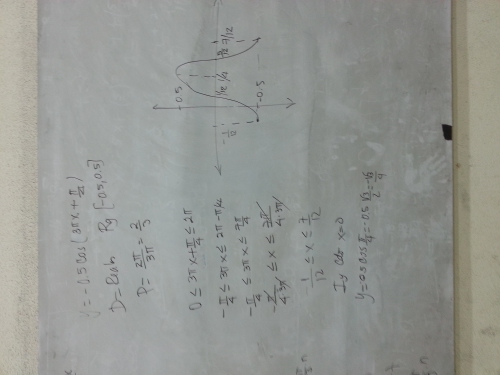 y = -0.5 cos(3πx + π/4)
D = Reals Rg [-0.5, 0.5]
P = 2π/3π = 2/3
0 ≤ 3πx + π/4 ≤ 2π
-π/4 ≤ 3πx ≤ 2π - π/4
-π/4 ≤ 3πx ≤ 7π/4
-π/4·3π ≤ x ≤ 7π/4·3π
1/12 ≤ x ≤ 7/12
Iy x=0
y = -0.5 cos π/4 = -0.5 √2/2 = -√2/4
-0.5
-1/12
1/12
1/4
7/12
-0.5